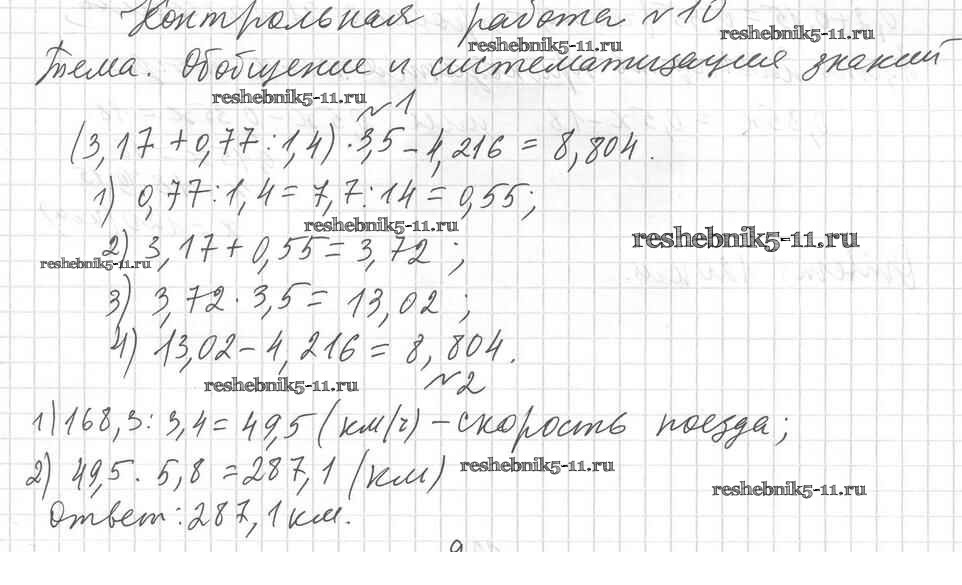 Контрольная работа №10
reshebnik5-11.ru
reshebnik5-11.ru
Тема. Обобщение и систематизация знаний
reshebnik5-11.ru
№1
(3,17 + 0,77 : 1,4) · 3,5 - 4,216 = 8,804.
1) 0,77 : 1,4 = 7,7 : 14 = 0,55;
reshebnik5-11.ru
reshebnik5-11.ru
2) 3,17 + 0,55 = 3,72;
reshebnik5-11.ru
3) 3,72 · 3,5 = 13,02;
4) 13,02 - 4,216 = 8,804.
reshebnik5-11.ru
№2
1) 168,3 : 3,4 = 49,5 (км/ч) - скорость поезда;
2) 49,5 · 5,8 = 287,1 (км)
reshebnik5-11.ru
reshebnik5-11.ru
Ответ: 287,1 км.